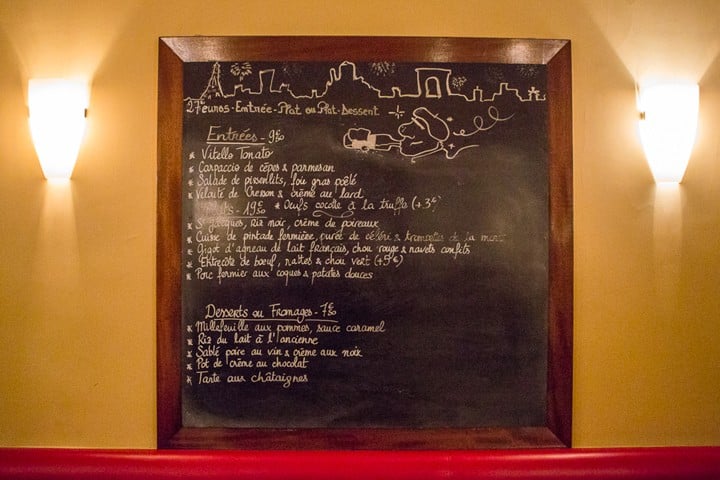 27€ euros - Entrée - Plat ou Plat - Dessert
Entrées - 9€50
* Vitello Tonato
* Carpaccio de cêpes & parmesan
* Salade de pissenlits, foie gras poêlé
* Velouté de Cresson & crème au lard
Plats - 19€50 * Oeufs cocotte à la truffe (+3€)
* St Jacques, Riz noir, crème de poireaux
* Cuisse de pintade fermière, purée de céleri & trompettes de la mort
* Gigot d'agneau de lait français, chou rouge & navets confits
* Entrecôte de bœuf, & chou vert (+5€)
* Porc fermier aux coques & patates douces
Desserts ou Fromages - 7€50
* Millefeuille aux pommes, sauce caramel
* Riz du lait à l'ancienne
* Sablé poire au vin & crème aux noix
* Pot de crème au chocolat
* Tarte aux châtaignes